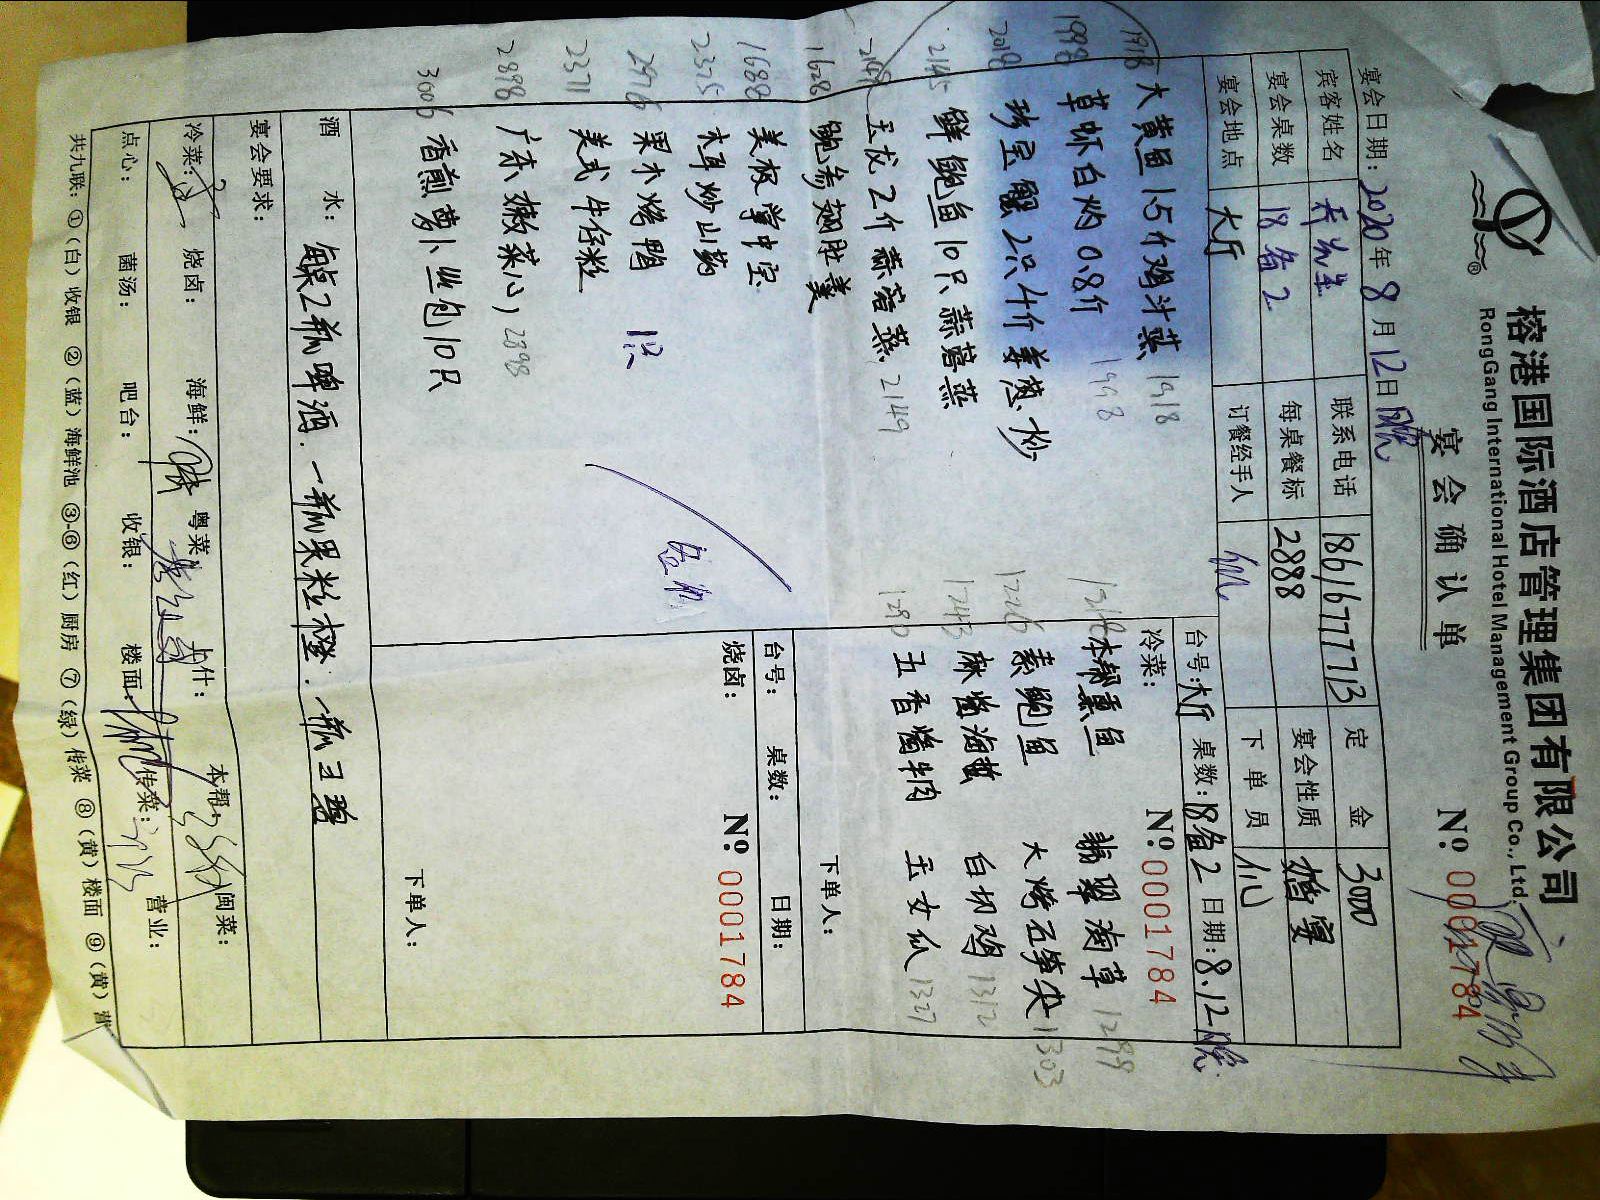 榕港国际酒店管理集团有限公司
RongGang International Hotel Management Group Co.,Ltd.
®
宴会确认单
№: 00001784
宴会日期: 2020年 8月 12日 晚
宾客姓名 联系电话 18616777713 定金 3000
宴会桌数 18备2 每桌餐标 2888 宴会性质 婚宴
宴会地点 大厅 订餐经手人 下单员
1918 大黄鱼1.5斤鸡汁蒸 1918
1998 草虾白灼0.8斤 1998
2018 珍宝蟹2只4斤姜葱炒
2145 鲜鲍鱼10只蒜蓉蒸
2149 玉龙2斤蒜蓉蒸 2149
1628 鲍参翅肚羹
1688 美极掌中宝
2375 木耳炒山药
2976 果木烤鸭 1只
2371 美式牛仔粒
2898 广东嫩菜心 2898
3606 香煎萝卜丝包10只
台号: 大厅 桌数: 18备2 日期: 8.12晚
冷菜: № 00001784
本帮熏鱼 翡翠海草 1299
素鲍鱼 大烤石笋尖 1303
1243 麻酱海蜇 白切鸡 1312
1290 五香酱牛肉 玉女瓜 1327
下单人:
台号: 桌数: 日期:
烧卤: № 00001784
下单人:
酒水: 每桌2瓶啤酒. 一瓶果粒橙. 一瓶王老
宴会要求:
冷菜: 烧卤: 海鲜: 粤菜: 上什: 本帮: 闽菜:
点心: 菌汤: 吧台: 收银: 楼面: 传菜: 营业:
共九联: ①(白)收银 ②(蓝)海鲜池 ③-⑥(红)厨房 ⑦(绿)传菜 ⑧(黄)楼面 ⑨(黄)营